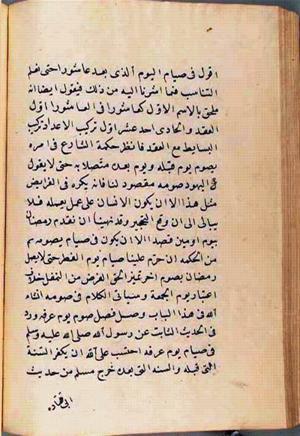 اقول في صيام اليوم الذي بعد عاشورا حتى نعلم
التناسب فيما اشرنا اليه من ذلك فيقول ايضا انه
ملحق بالاسم الاول كما عاشورا في العاشر اول
العقد والحادي احد عشر اول تركيب الاعداد تركيب
البسايط مع العقد فانظر حكمة الشارع في امره
بصوم يوم قبله ويوم بعده متصلا به حتى لا يقول
اليهود صومه مقصود لنا فانه يكره في الفرايض
مثل هذا الا ان يكون الانسان على عمل يعمله فلا
يبالي الى ان وقع التحجير وقد نهينا ان نقدم رمضان
بيوم او يومين قصدا الا ان يكون في صيام يصومه ثم
من الحكمة ان حرم علينا صيام يوم الفطر حتى لا يصل
رمضان بصوم اخر تميز الحق الفرض من النفل خلاف
اعتبار يوم الجمعة وسياتي الكلام في صومه ان شاء
الله في هذا الباب وصل فصل صوم يوم عرفة ورد
في الحديث الثابت عن رسول الله صلى الله عليه وسلم
في صيام يوم عرفة احتسب على الله ان يكفر السنة
التي قبله والسنة التي بعده خرج مسلم من حديث
ابي قتادة